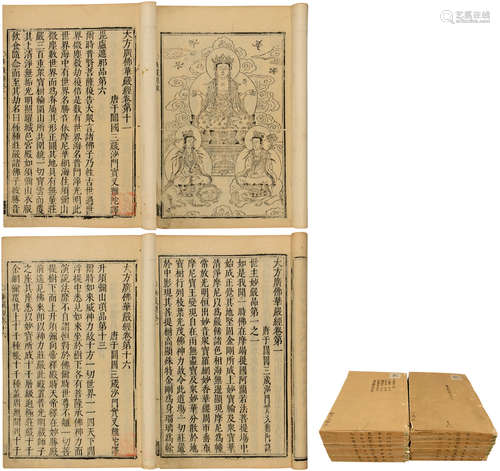 艺狐在线
大方廣佛華嚴經卷第十一
唐于闐國三藏沙門實叉難陀譯
毘盧遮那品第六
爾時普賢菩薩復告大衆言諸佛子乃往古世過世
界微塵數劫復倍是數有世界海名普門淨光明此
世界海中有世界名勝音依摩尼華網海住須彌山
微塵數世界而爲眷屬其形正圓其地具有無量莊
嚴三百重衆寶樹輪圍山所共圍繞一切寶雲而覆
其上清淨無垢光明照耀城邑宮殿如須彌山衣服
飲食隨念而至其劫名曰種種莊嚴諸佛子彼勝音
大方廣佛華嚴經卷第一
唐于闐國三藏沙門實叉難陀譯
世主妙嚴品第一之一
如是我聞一時佛在摩竭提國阿蘭若法菩提場中
始成正覺其地堅固金剛所成上妙寶輪及衆寶華
清淨摩尼以爲嚴飾諸色相海無邊顯現摩尼爲幢
常放光明恒出妙音衆寶羅網妙香華纓周帀垂布
摩尼寶王變現自在雨無盡寶及衆妙華分散於地
寶樹行列枝葉光茂佛神力故令此道場一切莊嚴
於中影現其菩提樹高顯殊特金剛爲身瑠璃爲幹
大方廣佛華嚴經卷第十六
唐于闐國三藏沙門實叉難陀譯
升須彌山頂品第十三
爾時如來威神力故十方一切世界一一四天下閻
浮提中悉見如來坐於樹下各有菩薩承佛神力而
演說法靡不自謂恒對於佛爾時世尊不離一切菩
提樹下而上升須彌向帝釋殿時天帝釋在妙勝殿
前遙見佛來即以神力莊嚴此殿置普光明藏師子
之座其座悉以妙寶所成十千層級逈極莊嚴十千
金網彌覆其上十千種帳十千種蓋周迴間列十千